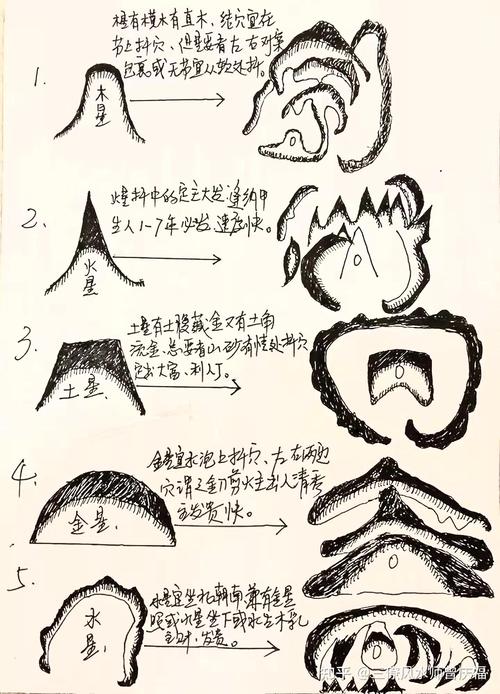 1.
木星
橫有横木有直木、结穴宜在
节上扦穴、但是要有左右对集
包裹或无节宜从软处扦。
2.
火星
燥扦中的定主大发逢纳甲
生人1-7年必发速度快。
3.
土星
土星有土腹藏金又有土角
流金、总要有山砂有情处扦穴
定主大富、利人丁。
4.
金星
金星宜水泡上扦穴、左右两边
穴谓之金刀剪火主出人清秀
主发贵快。
5.
水星
水星宜坐北朝南兼有金星
水星坐下或水生木乳
发贵。
知乎 @三僚风水师曾庆福